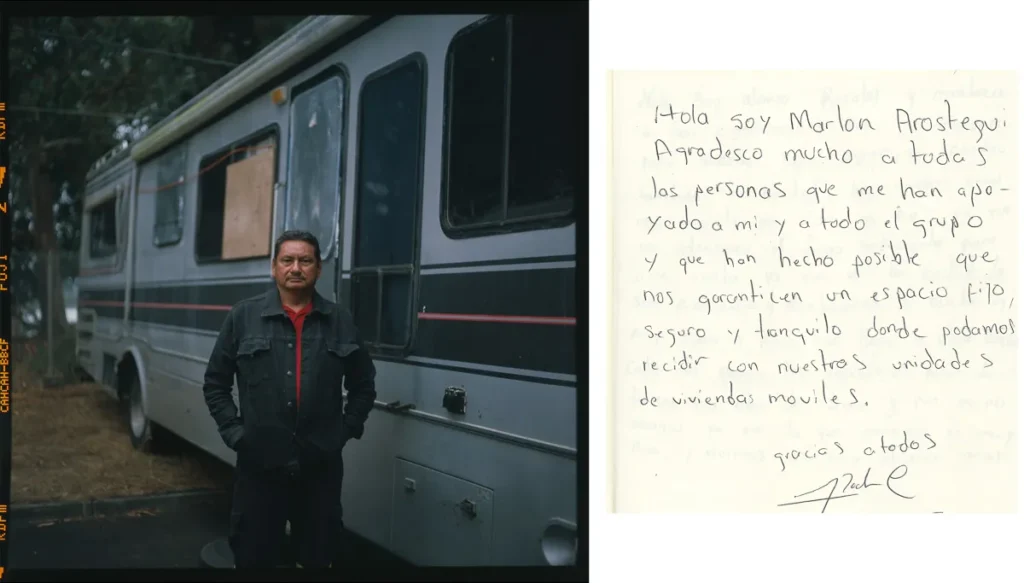 FUJI
Hola soy Marlon Arostegui.
Agradesco mucho a todas
las personas que me han apo-
yado a mi y a todo el grupo
y que han hecho posible que
nos garanticen un espacio fijo,
seguro y tranquilo donde podamos
recidir con nuestros unidades
de viviendas moviles.
gracias atodos